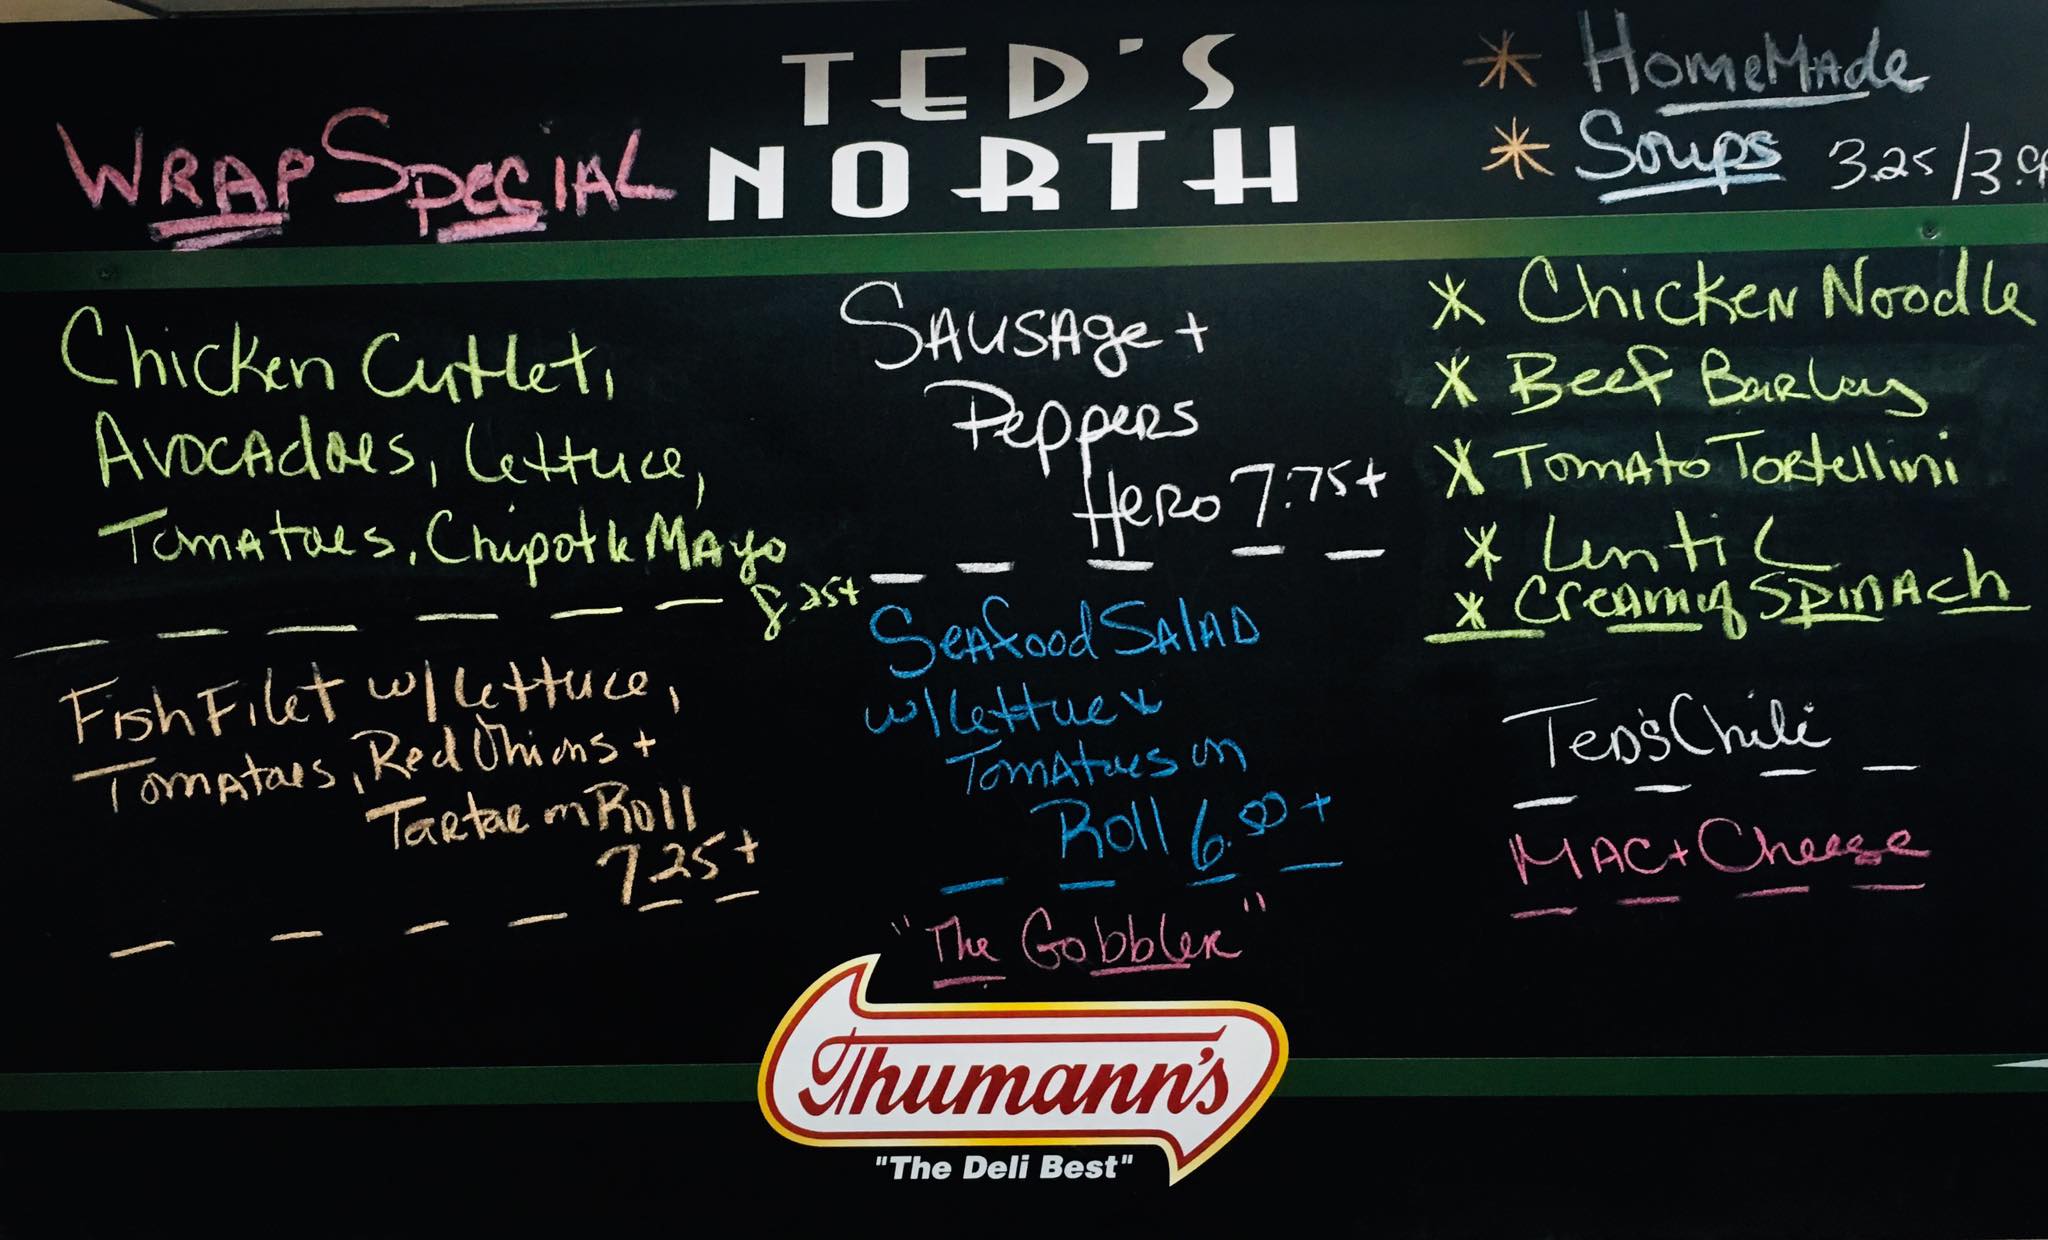 TED'S
NORTH
WRAP SPECIAL
Chicken Cutlet,
Avocadoes, Lettuce,
Tomatoes, Chipotle Mayo
8.25+
Fish Filet w/ Lettuce,
Tomatoes, Red Onions +
Tartar on Roll
7.25+
Sausage +
Peppers
Hero 7.75+
Seafood Salad
w/ Lettuce +
Tomatoes on
Roll 6.00+
"The Gobbler"
* HomeMade
* Soups 3.25/3.9
* Chicken Noodle
* Beef Barley
* Tomato Tortellini
* Lentil
* Creamy Spinach
Ted's Chili
Mac + Cheese
Thumann's
"The Deli Best"